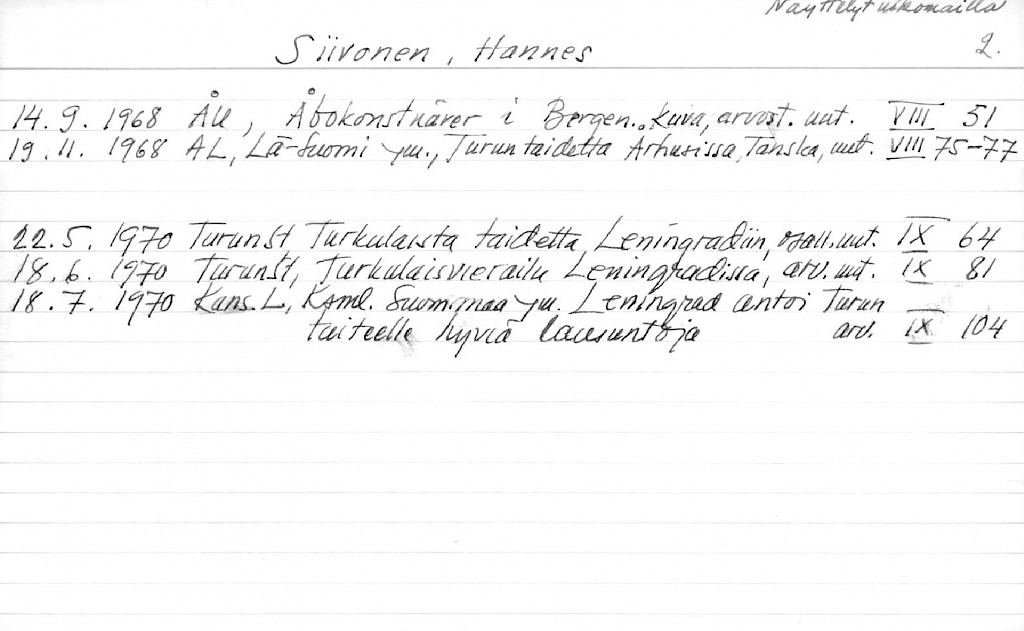 Näyttelyt ulkomailla
2.
Siivonen, Hannes
14.9. 1968 ÅU, Åbokonstnärer i Bergen., Kuva, arvost. uut. VIII 51
19.11. 1968 AL, Lä-Suomi ym., Turun taidetta Århusissa, Tanska, uut. VIII 75-77
22.5. 1970 TurunSt Turkulaista taidetta Leningradiin, osall. uut. IX 64
18.6. 1970 TurunSt, Turkulaisvierailu Leningradissa, arv. uut. IX 81
18.7. 1970 Kans.L, Köml. Suom.maa ym. Leningrad antoi Turun
taiteelle hyviä lausuntoja arv. IX 104